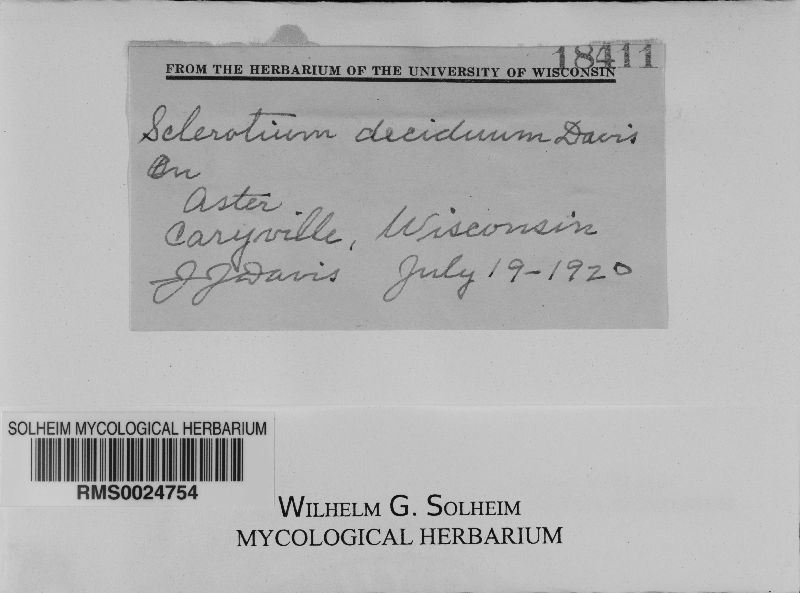 18411
FROM THE HERBARIUM OF THE UNIVERSITY OF WISCONSIN
Sclerotium deciduum Davis
On
Aster
Caryville, Wisconsin
J J Davis July 19-1920
SOLHEIM MYCOLOGICAL HERBARIUM
RMS0024754
WILHELM G. SOLHEIM
MYCOLOGICAL HERBARIUM